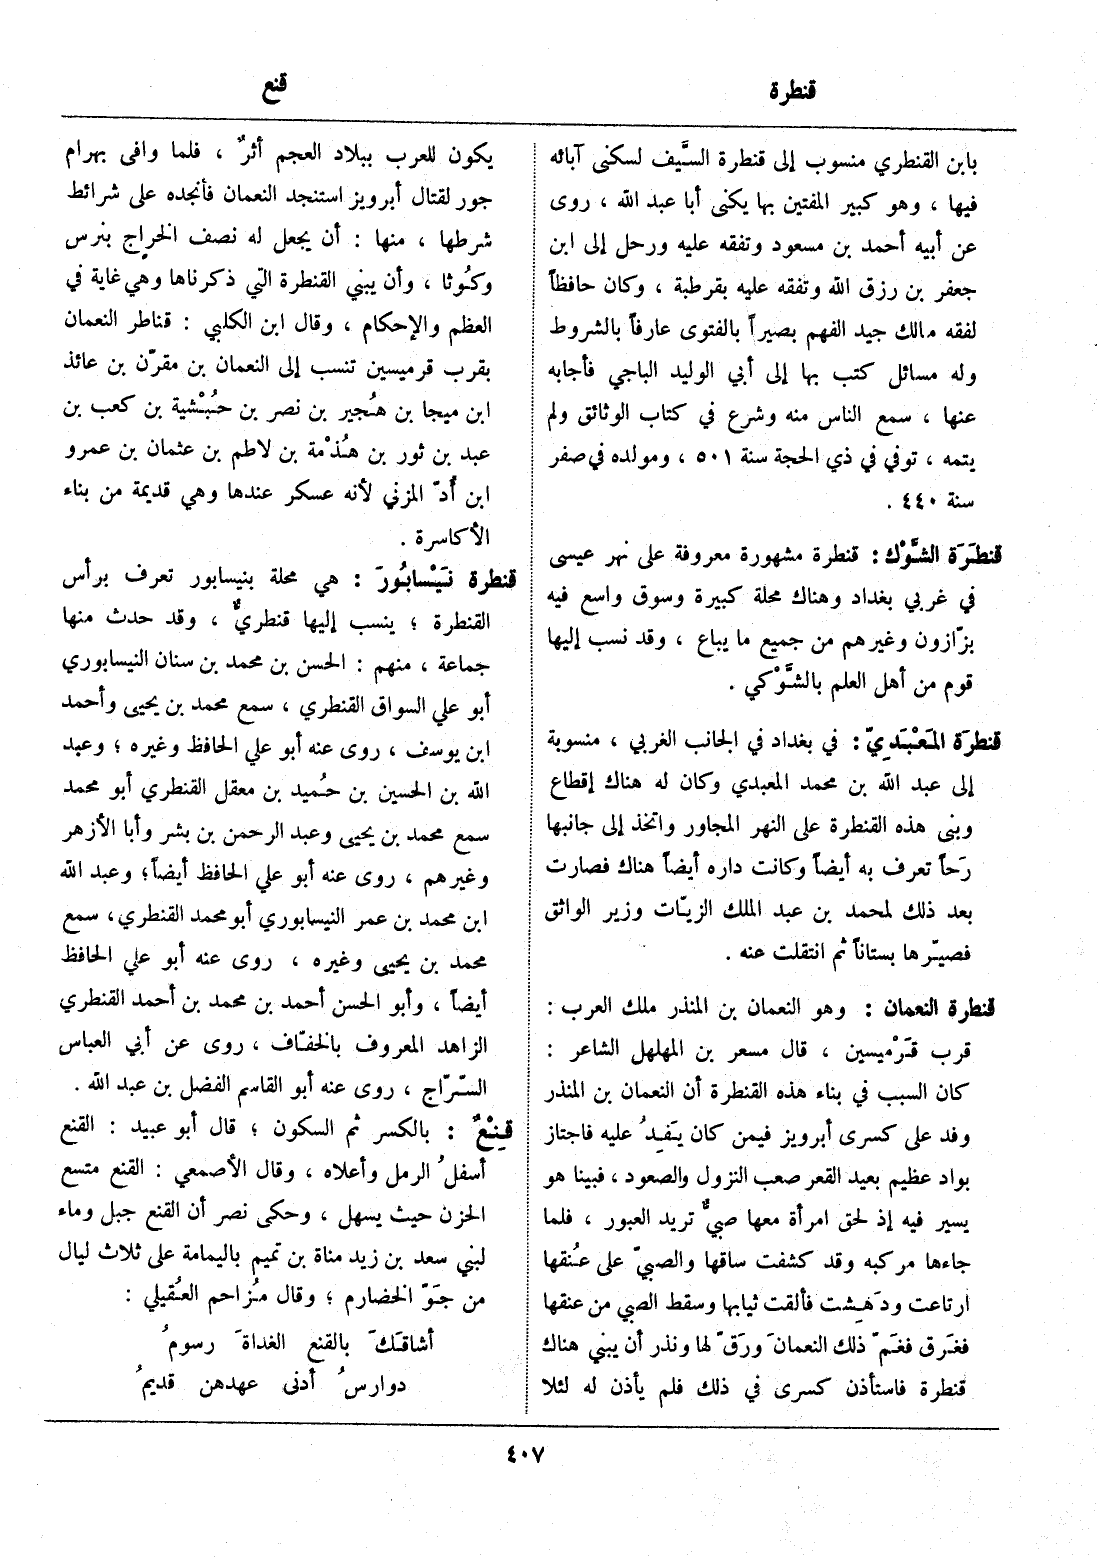 قنطرة
قنع
بابن القنطري منسوب إلى قنطرة السَّيف لسكنى آبائه
فيها ، وهو كبير المفتين بها يكنى أبا عبد الله ، روى
عن أبيه أحمد بن مسعود وتفقه عليه ورحل إلى ابن
جعفر بن رزق الله وتفقه عليه بقرطبة ، وكان حافظاً
لفقه مالك جيد الفهم بصيراً بالفتوى عارفاً بالشروط
وله مسائل كتب بها إلى أبي الوليد الباجي فأجابه
عنها ، سمع الناس منه وشرع في كتاب الوثائق ولم
يتمه ، توفي في ذي الحجة سنة ٥٠١ ، ومولده في صفر
سنة ٤٤٠ .
قنطَرَة الشَّوْك : قنطرة مشهورة معروفة على نهر عيسى
في غربي بغداد وهناك محلة كبيرة وسوق واسع فيه
بزّازون وغيرهم من جميع ما يباع ، وقد نسب إليها
قوم من أهل العلم بالشَّوْكي .
قنطرَة المَعْبَديّ : في بغداد في الجانب الغربي ، منسوبة
إلى عبد الله بن محمد المعبدي وكان له هناك إقطاع
وبنى هذه القنطرة على النهر المجاور واتخذ إلى جانبها
رَحاً تعرف به أيضاً وكانت داره أيضاً هناك فصارت
بعد ذلك لمحمد بن عبد الملك الزيّات وزير الواثق
فصيّرها بستاناً ثم انتقلت عنه .
قنطرة النعمان : وهو النعمان بن المنذر ملك العرب :
قرب قَرْميسين ، قال مسعر بن المهلهل الشاعر :
كان السبب في بناء هذه القنطرة أن النعمان بن المنذر
وفد على كسرى أبرويز فيمن كان يَفِدُ عليه فاجتاز
بواد عظيم بعيد القعر صعب النزول والصعود ، فبينا هو
يسير فيه إذ لحق امرأة معها صبيٌّ تريد العبور ، فلما
جاءها مركبه وقد كشفت ساقها والصبيّ على عُنقها
ارتاعت ودَهِشت فألقت ثيابها وسقط الصبي من عنقها
فغَرق فغَمّ ذلك النعمانَ ورَقّ لها ونذر أن يبني هناك
قنطرة فاستأذن كسرى في ذلك فلم يأذن له لئلا
يكون للعرب ببلاد العجم أثرٌ ، فلما وافى بهرام
جور لقتال أبرويز استنجد النعمان فأنجده على شرائط
شرطها ، منها : أن يجعل له نصف الخراج بنرس
وكُوثا ، وأن يبني القنطرة التي ذكرناها وهي غاية في
العظم والإحكام ، وقال ابن الكلبي : قناطر النعمان
بقرب قرميسين تنسب إلى النعمان بن مقرّن بن عائذ
ابن ميجا بن هُجير بن نصر بن حُبْشية بن كعب بن
عبد بن ثور بن هُذْمة بن لاطم بن عثمان بن عمرو
ابن أُدّ المزني لأنه عسكر عندها وهي قديمة من بناء
الأكاسرة .
قنطرة نَيْسابُورَ : هي محلة بنيسابور تعرف برأس
القنطرة ؛ ينسب إليها قنطريٌّ ، وقد حدث منها
جماعة ، منهم : الحسن بن محمد بن سنان النيسابوري
أبو علي السواق القنطري ، سمع محمد بن يحيى وأحمد
ابن يوسف ، روى عنه أبو علي الحافظ وغيره ؛ وعبد
الله بن الحسين بن حُميد بن معقل القنطري أبو محمد
سمع محمد بن يحيى وعبد الرحمن بن بشر وأبا الأزهر
وغيرهم ، روى عنه أبو علي الحافظ أيضاً؛ وعبد الله
ابن محمد بن عمر النيسابوري أبو محمد القنطري، سمع
محمد بن يحيى وغيره ، روى عنه أبو علي الحافظ
أيضاً ، وأبو الحسن أحمد بن محمد بن أحمد القنطري
الزاهد المعروف بالخفّاف ، روى عن أبي العباس
السّرّاج ، روى عنه أبو القاسم الفضل بن عبد الله .
قِنْعٌ : بالكسر ثم السكون ؛ قال أبو عبيد : القنع
أسفلُ الرمل وأعلاه ، وقال الأصمعي : القنع متسع
الحزن حيث يسهل ، وحكى نصر أن القنع جبل وماء
لبني سعد بن زيد مناة بن تميم باليمامة على ثلاث ليال
من جَوّ الخضارم ؛ وقال مُزاحم العُقيلي :
أشاقَكَ بالقنع الغداةَ رسومُ
دوارسُ أدنى عهدهن قديمُ
٤٠٧